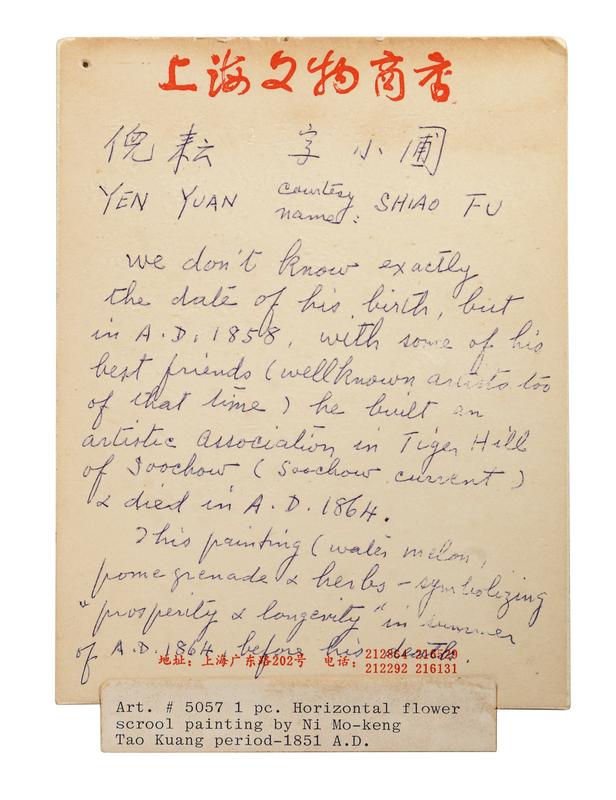 上海文物商店
倪耘 字小圃
YEN YUAN courtesy name: SHIAO FU
we don't know exactly
the date of his birth, but
in A.D. 1858, with some of his
best friends (wellknown artists too
of that time) he built an
artistic association in Tiger Hill
of Soochow (Soochow current)
& died in A.D. 1864.
This painting (water melon,
pomegrenade & herbs - symbolizing
"prosperity & longevity" in summer
of A.D. 1864, before his death.
地址：上海广东路202号 电话：212864 216529
212292 216131
Art. # 5057 1 pc. Horizontal flower
scrool painting by Ni Mo-keng
Tao Kuang period-1851 A.D.